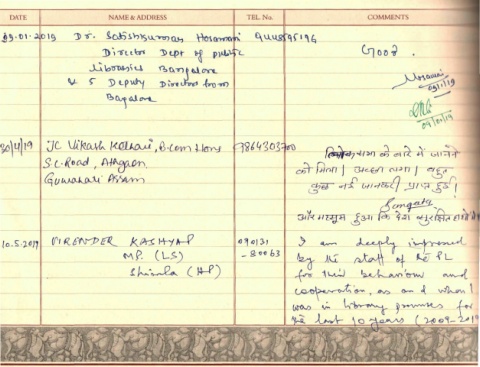 DATE NAME & ADDRESS TEL. No. COMMENTS
09.01.2019 Dr. Satishkumar Hosamani
Director Dept of public
libraries Bangalore
& 5 Deputy Director from
Good
09/01/19
30/4/19 JC Vikash Kothari, B.com Hons 9864303700
S.C. Road, Athgaon
Guwahati Assam
के बारे में जानने
को मिला। अच्छा लगा। बहुत
कुछ नई जानकारी प्राप्त हुई।
और महसूस हुआ कि देश
10.5.2019 VIRENDER KASHYAP 090131
MP. (LS) -80063
Shimla (HP)
I am deeply impressed
by the staff of the PL
for their behaviour and
cooperation, as and when I
was in library premises for
the last 10 years (2009-2019